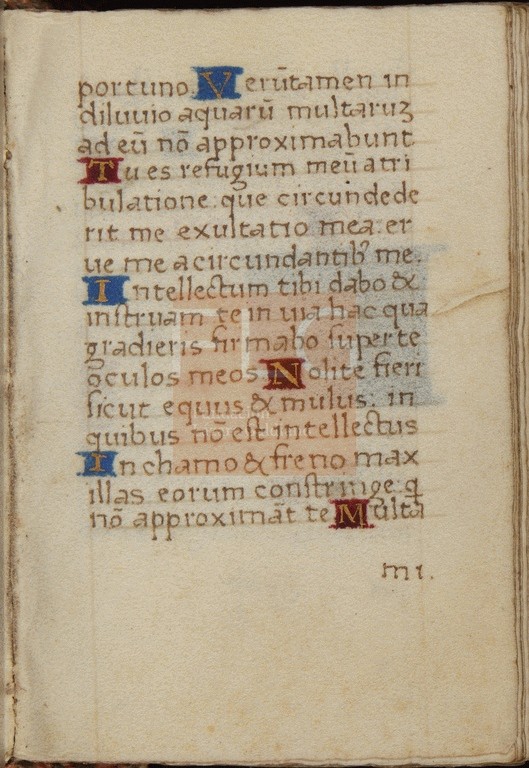 portuno. Verūtamen in
diluvio aquarū multaruꝫ
ad eū nō approximabunt
Tu es refugium meū a tri
bulatione: que circundede
rit me exultatio mea: er
ue me a circundantibꝰ me.
Intellectum tibi dabo &
instruam te in via hac qua
gradieris firmabo super te
oculos meos Nolite fieri
sicut equus & mulus: in
quibus nō est intellectus
In chamo & freno max
illas eorum constringe: q̄
nō approximāt te Multa
mi.